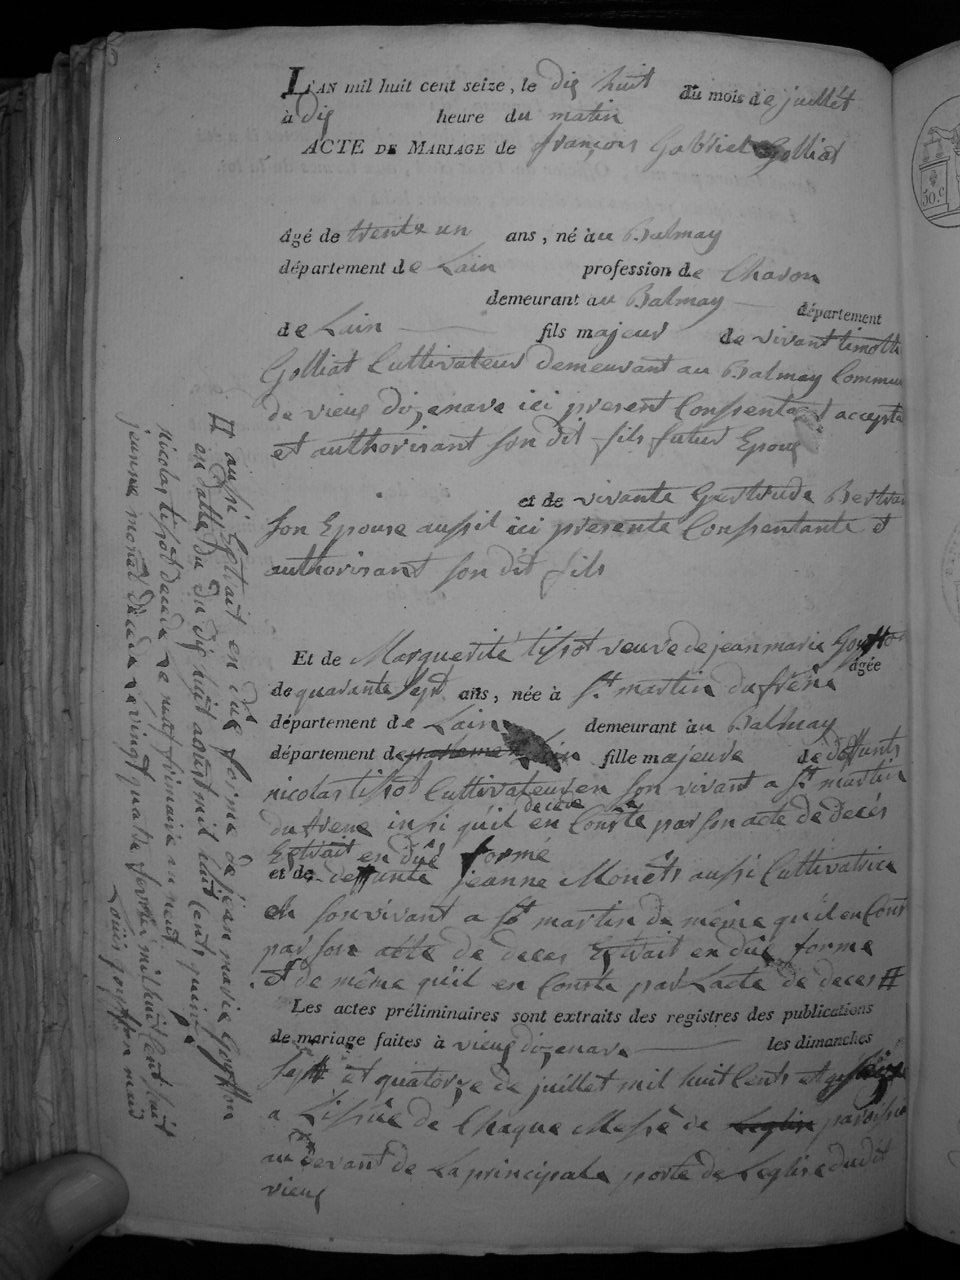 L'AN mil huit cent seize, le dix huit du mois de juillét
à dix heure du matin
ACTE DE MARIAGE de françois Gabriel Golliat
âgé de trente un ans, né au Balmay
département de Lain profession de Charon
demeurant au Balmay département
de Lain fils majeur de vivant timoth
Golliat Cultivateur demeurant au Balmay Commu
de vieux dizenave ici present Consentant et accepta
et authorisant son dit fils futur Epoux
et de vivante Gertrude Bertran
son Epouse aussi ici presente Consentante et
authorisant son dit fils
Et de Marguerite tissot veuve de jean marie Gouffon
âgée
de quarante sept ans, née à St martin du frêne
département de Lain demeurant au Balmay
département de fille majeure de deffunts
nicolas tissot Cultivateur en son vivant a St martin
du frene insi quil en Conste par son acte de Decés
Extrait en düe forme
et de deffunte jeanne Monéts aussi Cultivatrice
en son vivant a St martin de même qu'il en Cons
par son acte de deces Extrait en düe forme
et de même qu'il en Conste par Lacte de deces #
Les actes préliminaires sont extraits des registres des publications
de mariage faites à vieux dizenave les dimanches
sept et quatorze de juillet mil huit Cents et
a Lissüe de Chaque Messe de paroissi
au devant de La principale porte de Leglise du dit
vieux
# aussi Extrait en düe forme de jean marie Gouffon
en datte du dix huit mil huit Cents quinze
nicolas tissot decedé le neuf frimaire an neuf
jeanne monet decedée le vingt quatre fevrier mil huit Cent huit
Louis gouffon
50.c